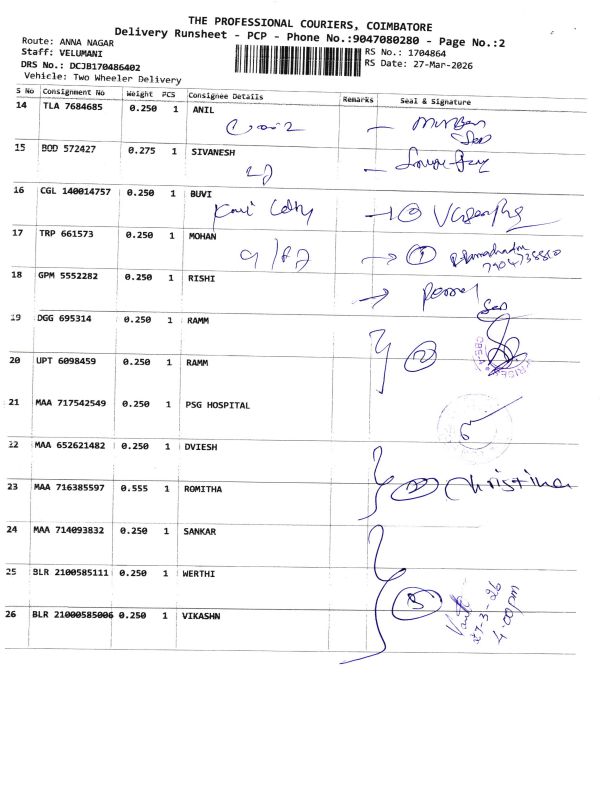 THE PROFESSIONAL COURIERS, COIMBATORE
Delivery Runsheet - PCP - Phone No.:9047080280 - Page No.:2
Route: ANNA NAGAR
Staff: VELUMANI
DRS No.: DCJB170486402
Vehicle: Two Wheeler Delivery
RS No.: 1704864
RS Date: 27-Mar-2026
S No Consignment No Weight PCS Consignee Details Remarks Seal & Signature
14 TLA 7684685 0.250 1 ANIL
15 BOD 572427 0.275 1 SIVANESH
16 CGL 140014757 0.250 1 BUVI
17 TRP 661573 0.250 1 MOHAN
1
7904738880
18 GPM 5552282 0.250 1 RISHI
19 DGG 695314 0.250 1 RAMM
2
20 UPT 6098459 0.250 1 RAMM
21 MAA 717542549 0.250 1 PSG HOSPITAL
22 MAA 652621482 0.250 1 DVIESH
23 MAA 716385597 0.555 1 ROMITHA
2 Christina
24 MAA 714093832 0.250 1 SANKAR
25 BLR 2100585111 0.250 1 WERTHI
3
27-3-26
4:00pm
26 BLR 21000585006 0.250 1 VIKASHN